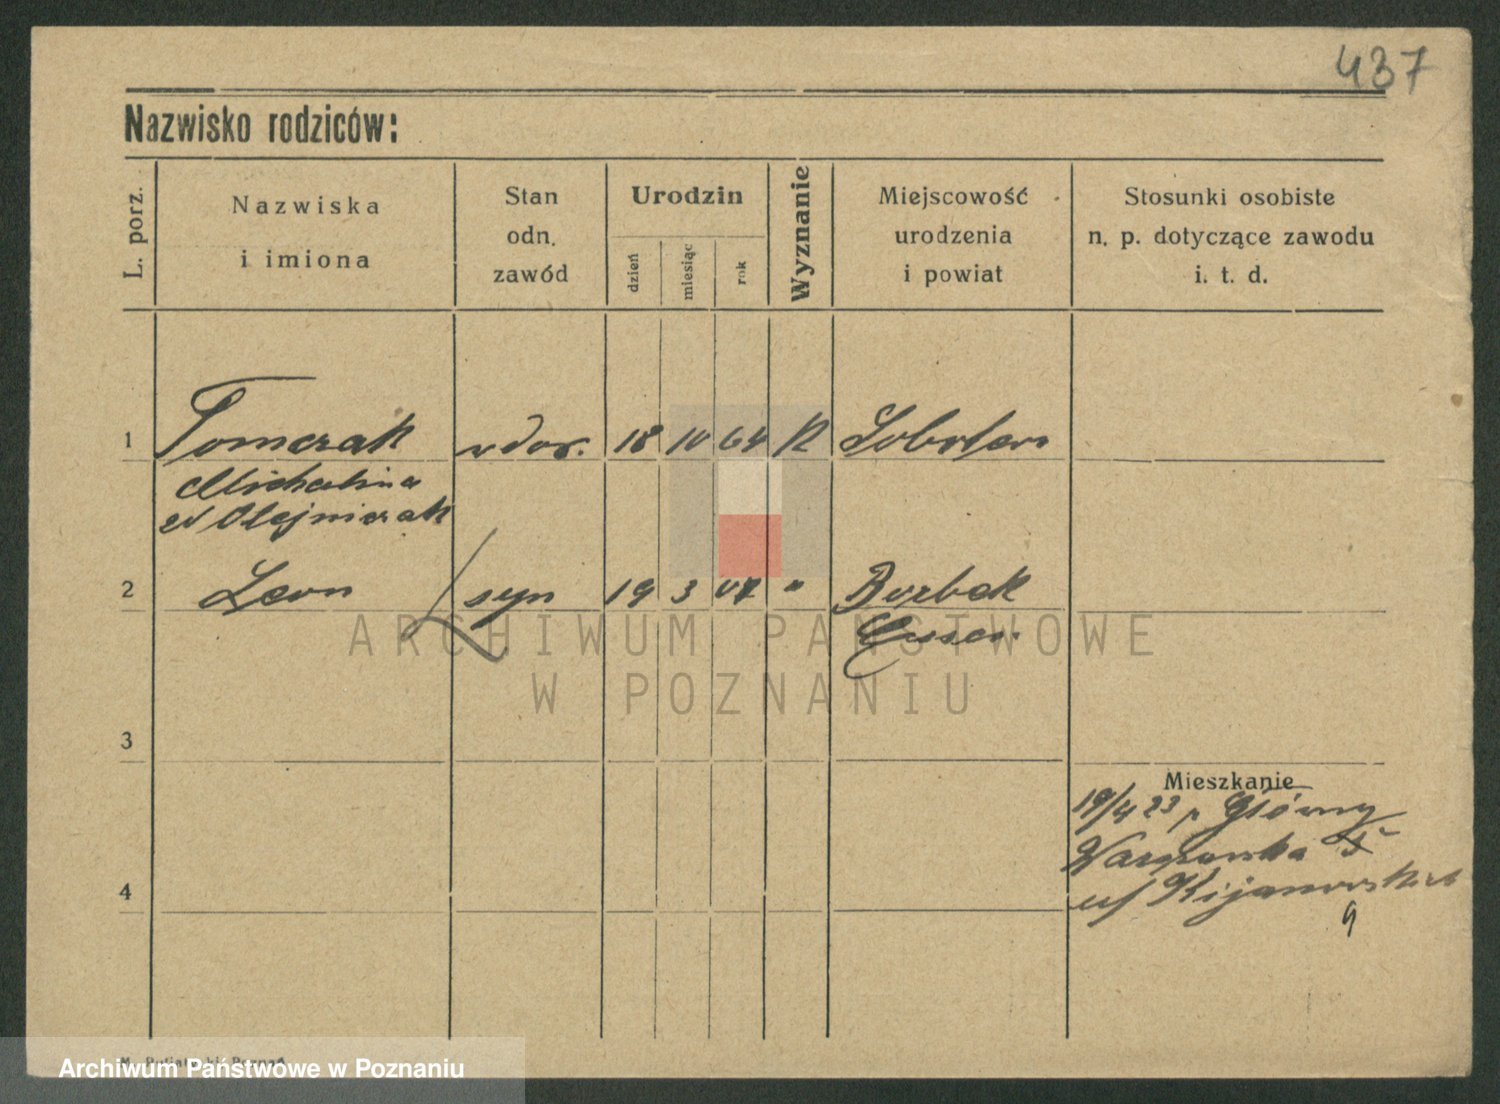 437
Nazwisko rodziców:
L. porz.
Nazwiska
i imiona
Stan
odn.
zawód
Urodzin
dzień
miesiąc
rok
Wyznanie
Miejscowość
urodzenia
i powiat
Stosunki osobiste
n. p. dotyczące zawodu
i. t. d.
1 Tomczak wdow. 18 10 64 K
Michalina
Olejniczak
2 Leon syn 19 3 07 " Borbek
Essen
ARCHIWUM PAŃSTWOWE
W POZNANIU
3
Mieszkanie
19/4 23 Główny
4
9
Archiwum Państwowe w Poznaniu